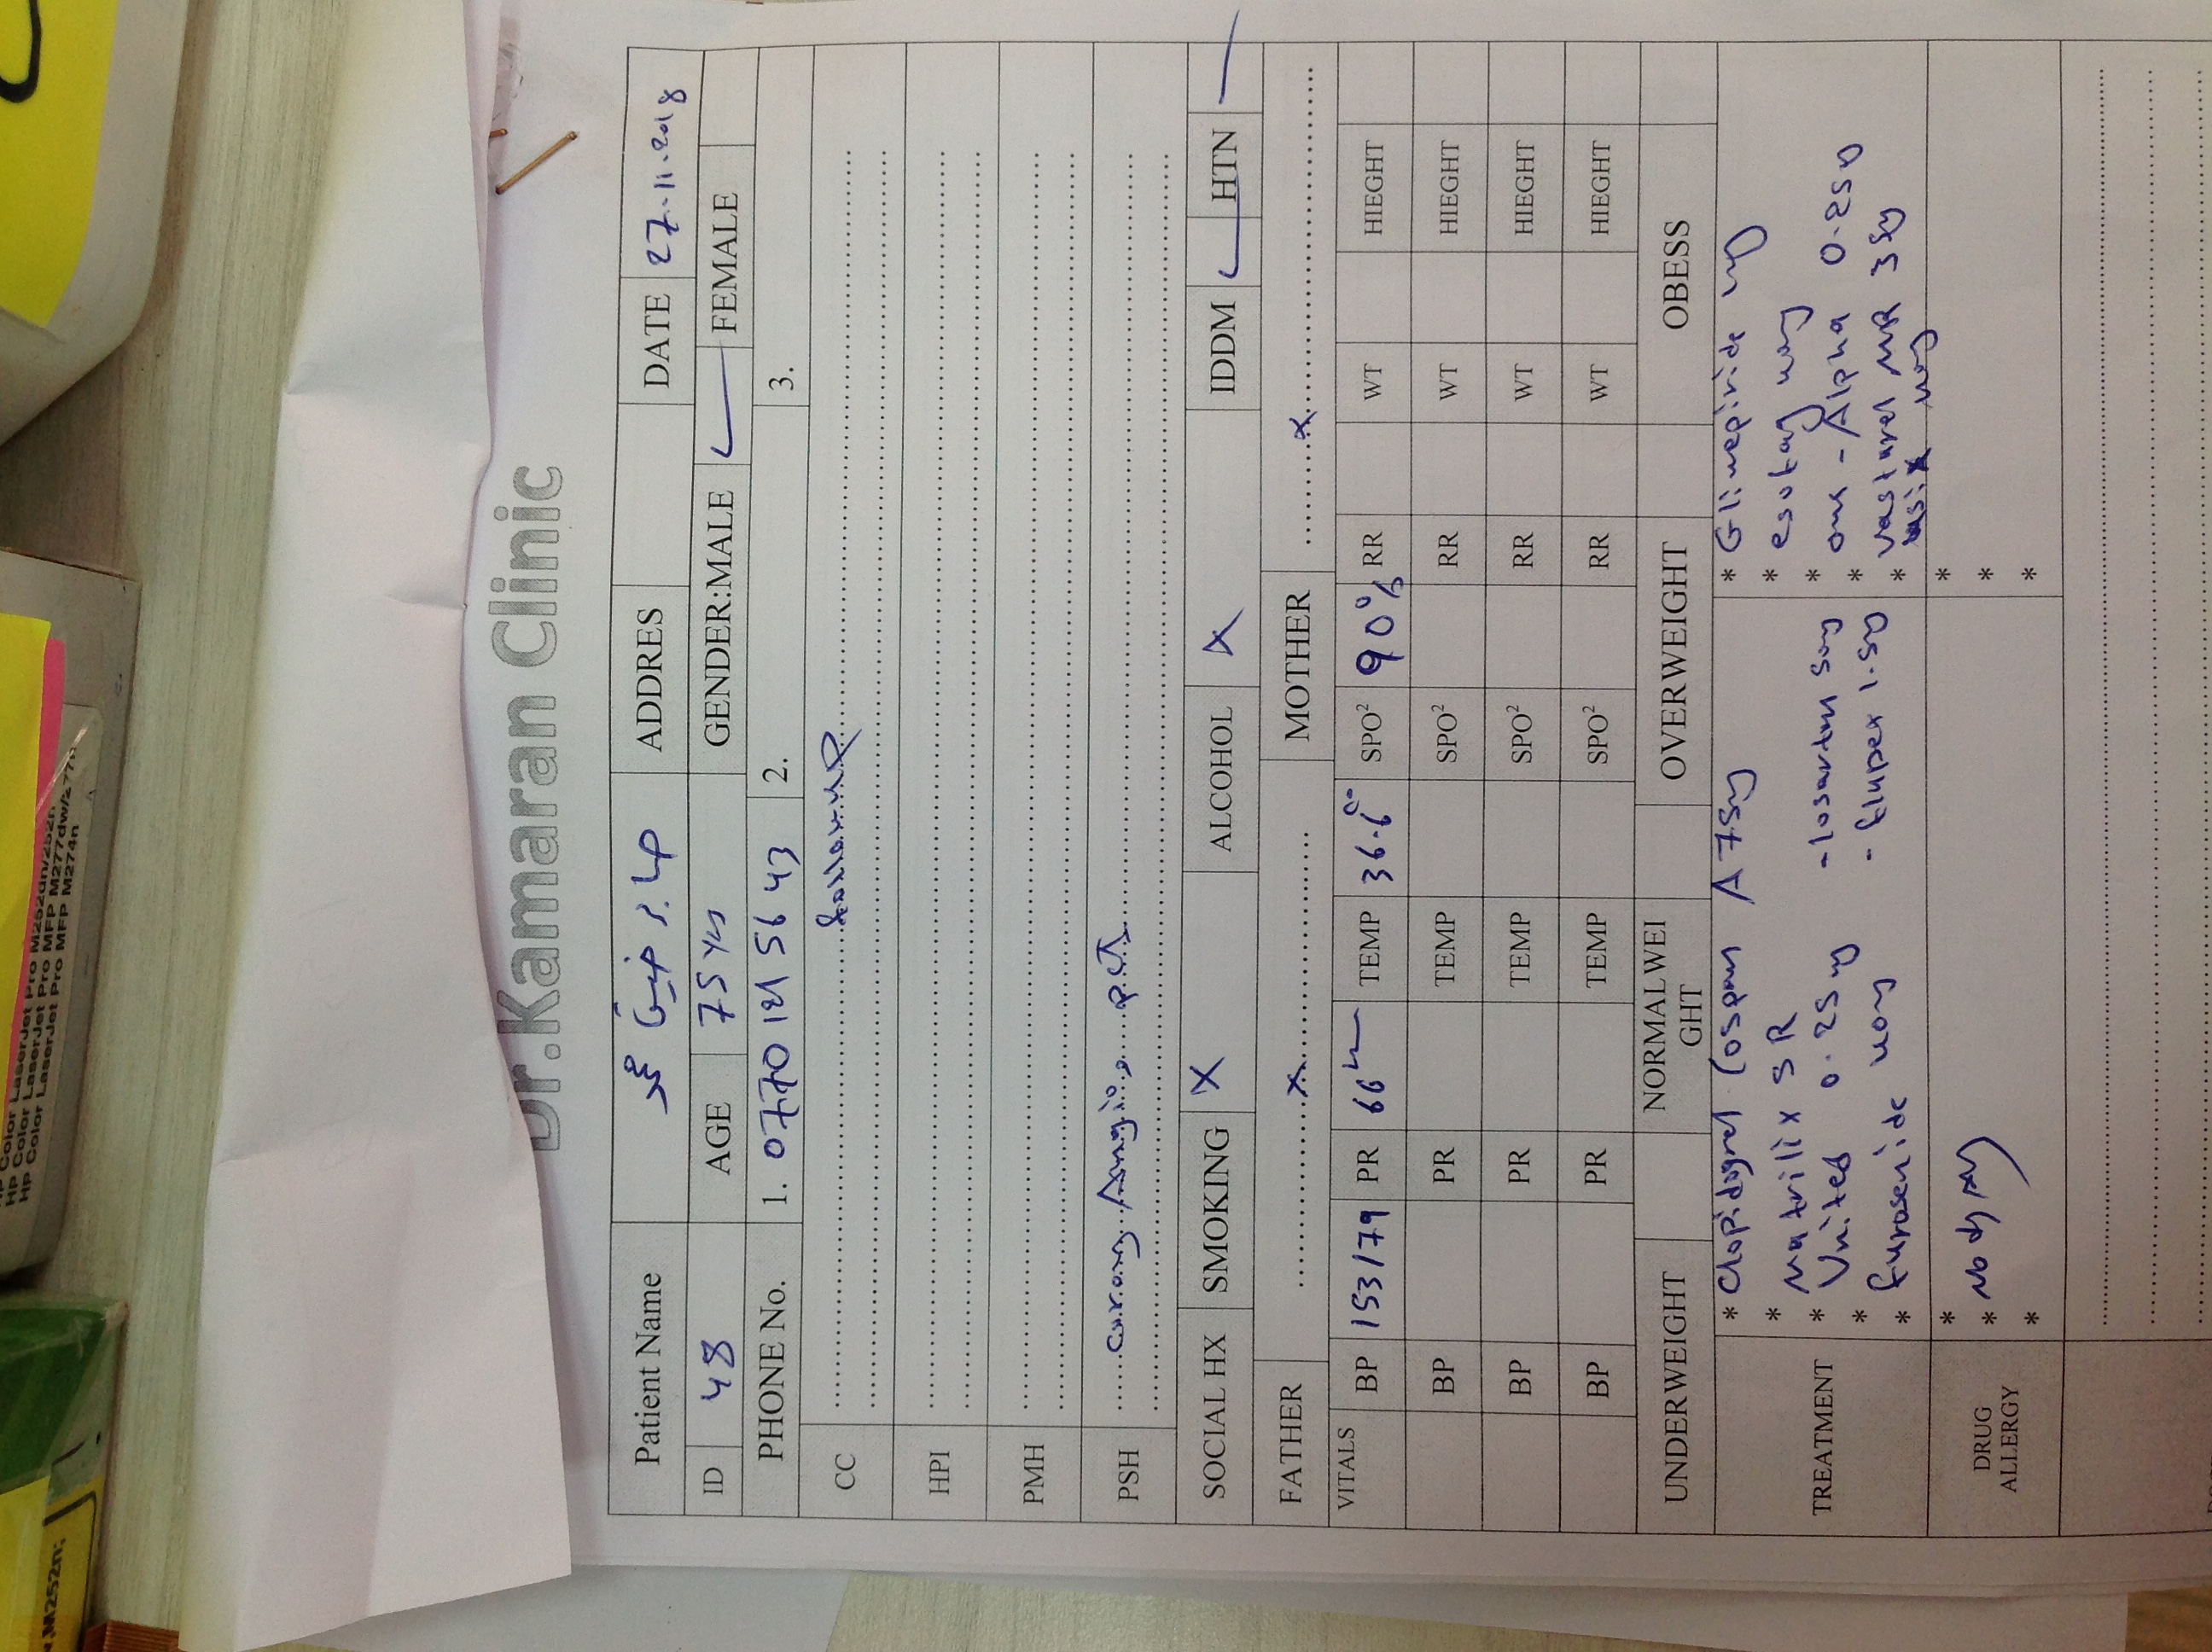 HP Color LaserJet Pro M252dn/252n
HP Color LaserJet Pro MFP M277dw/277n
HP Color LaserJet Pro MFP M274n
M252n;
Dr.Kamaran Clinic
Patient Name ADDRES DATE 27.11.2018
ID 48 AGE 75 GENDER:MALE FEMALE
PHONE No. 1. 0770 56 43 2. 3.
CC
HPI
PMH
PSH coronary Angio
SOCIAL HX SMOKING X ALCOHOL X IDDM HTN
FATHER x MOTHER x
VITALS BP 153/79 PR 66 TEMP 36.6 SPO² 90% RR WT HIEGHT
BP PR TEMP SPO² RR WT HIEGHT
BP PR TEMP SPO² RR WT HIEGHT
BP PR TEMP SPO² RR WT HIEGHT
UNDERWEIGHT NORMAL WEI
GHT OVERWEIGHT OBESS
TREATMENT
* Clopidogrel A 75mg
* Natrilix SR
* United 0.25mg - losartan 50mg
* - flupex 1.50
* furosemide 40mg
* Glimepiride
* 
* one - Alpha 0.25
* vastarel MR 35mg
* 40mg
DRUG
ALLERGY
*
* No
*
*
*
*